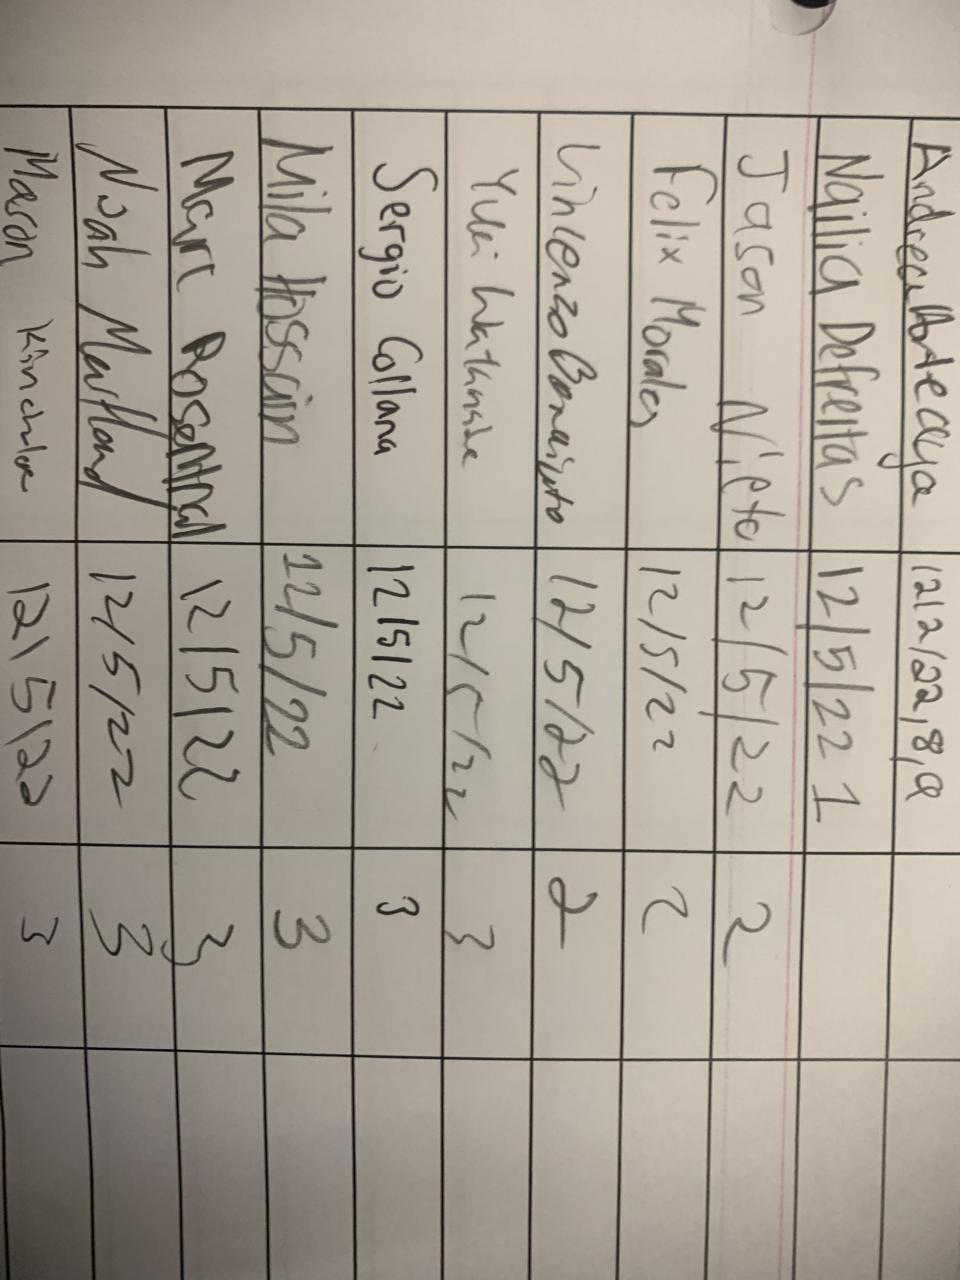 12/2/22, 8, 9
Nailia Defreitas 12/5/22 1
Jason Nieto 12/5/22 2
Felix Morales 12/5/22 2
12/5/22 2
Yuki 12/5/22 3
Sergio Collana 12/5/22 3
Mila Hossain 12/5/22 3
Marc Rosenthal 12/5/22 3
Noah Maitland 12/5/22 3
Mason 12/5/22 3